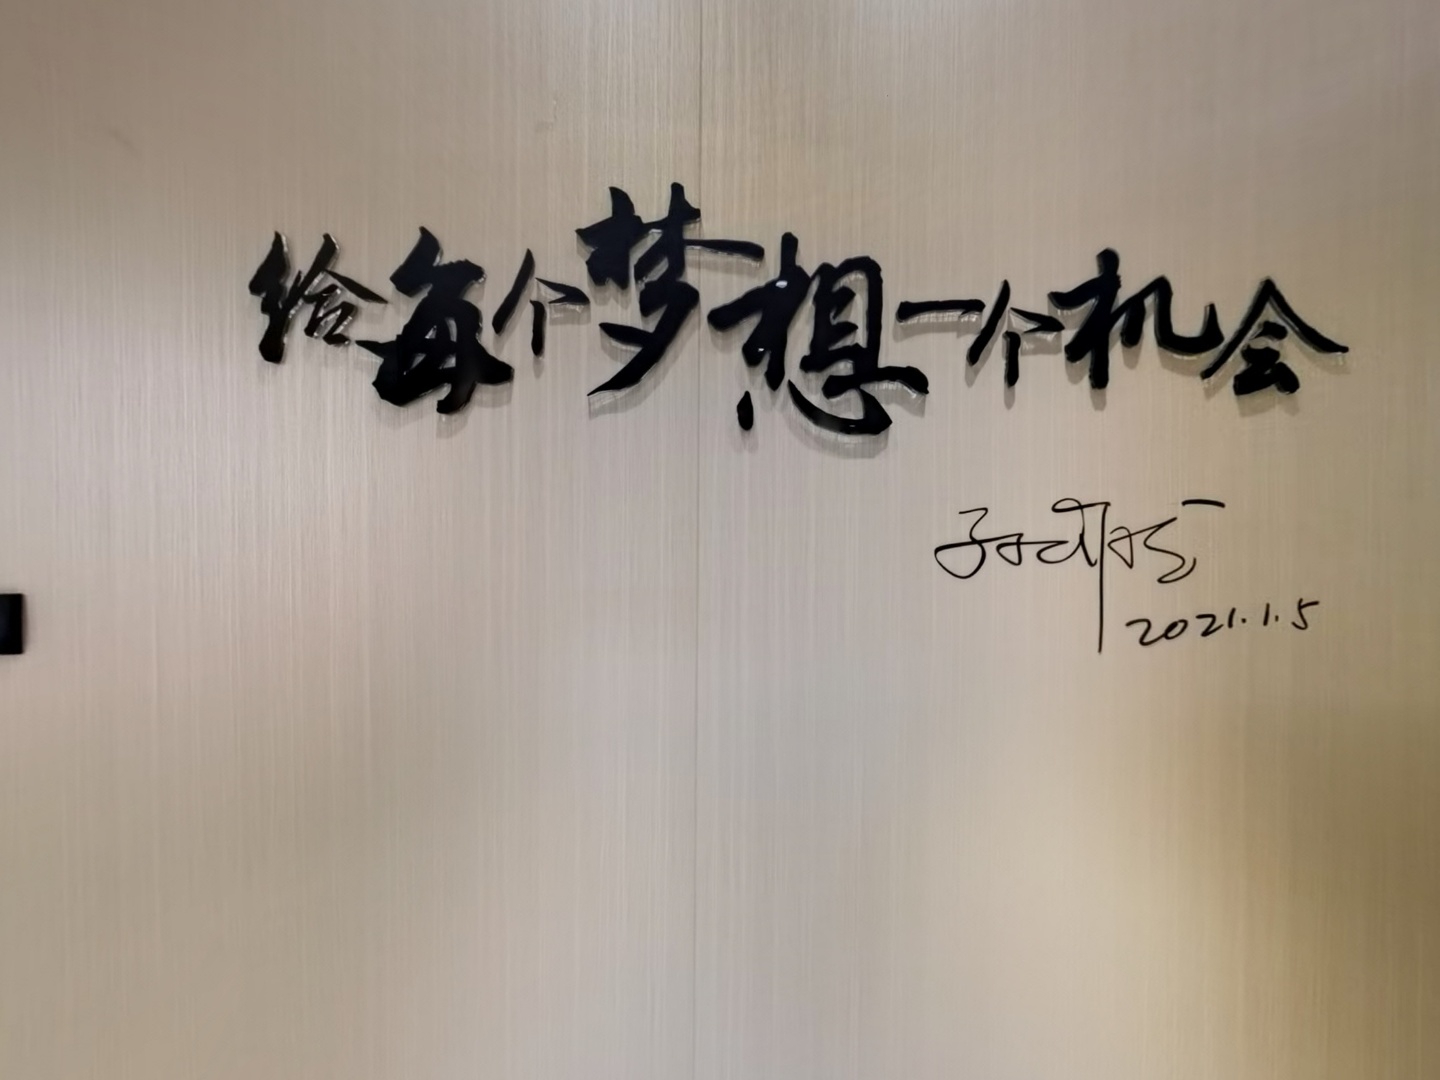 给每个梦想一个机会
2021.1.5